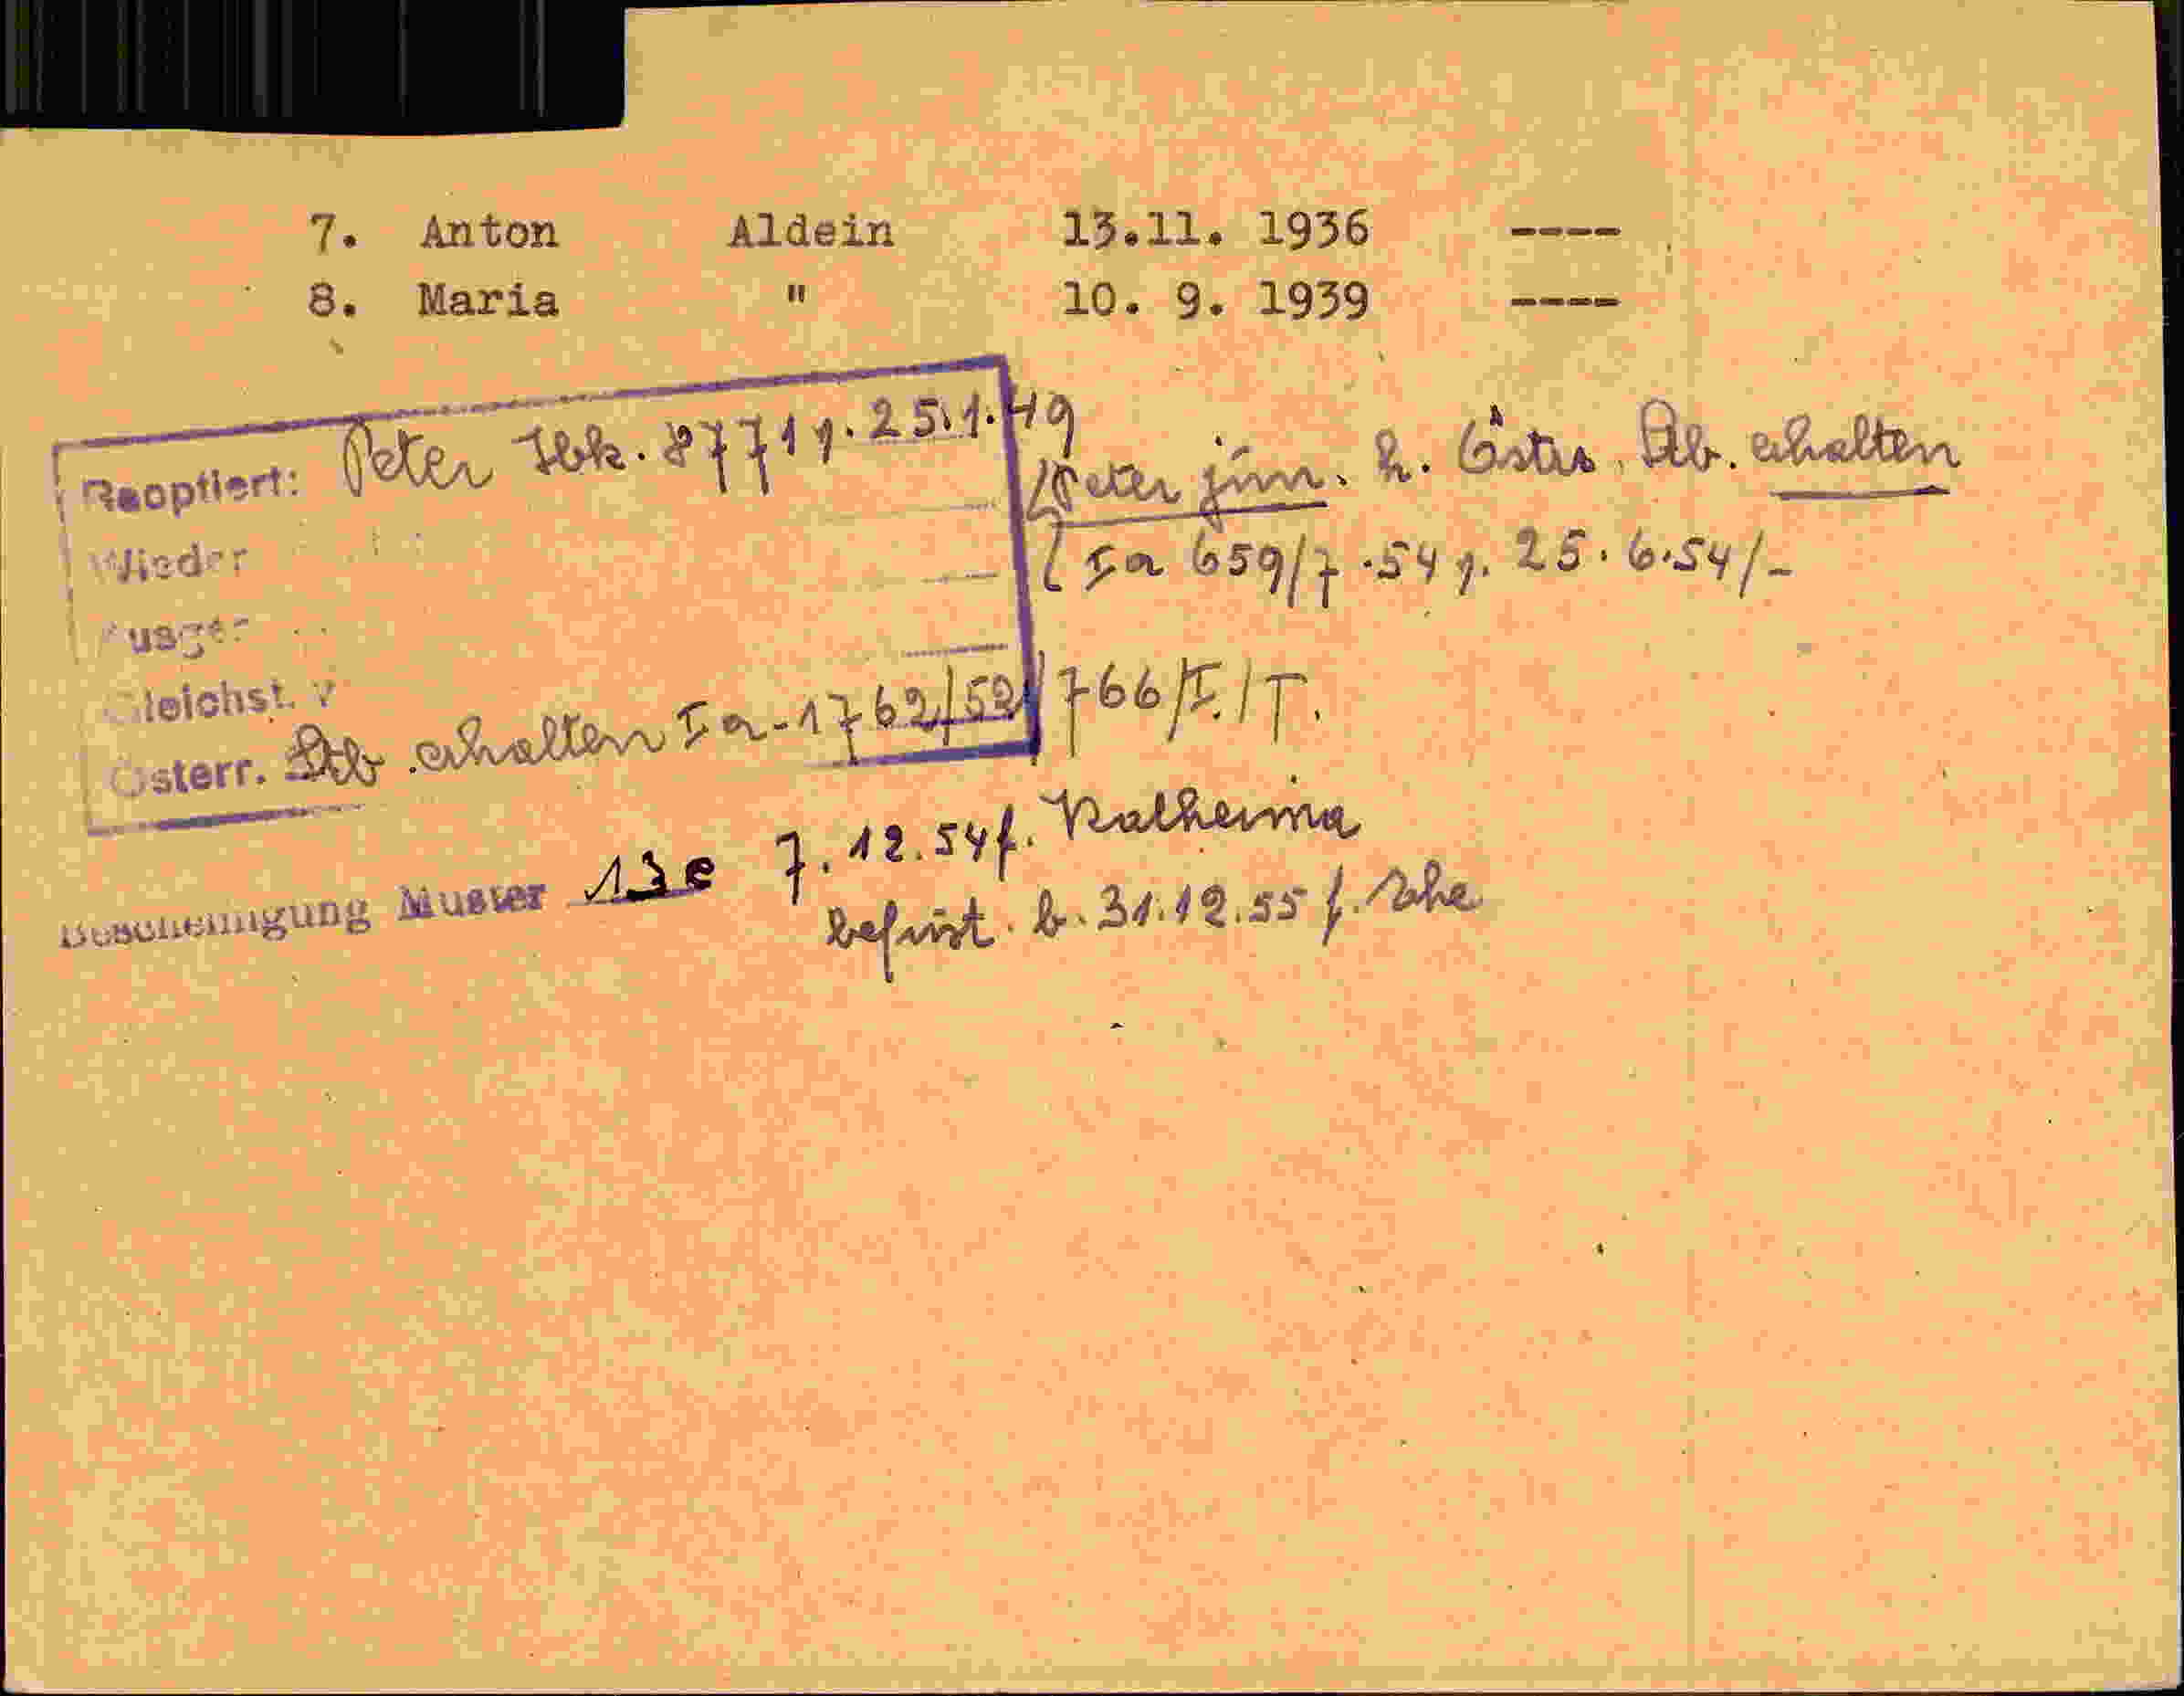 7. Anton Aldein 13.11. 1936 ----
8. Maria " 10. 9. 1939 ----
Reoptiert: Peter Ibk. 8771 v. 25.1.49
Peter jun. h. Östr. Stb. erhalten
Ia 659/7.54 v. 25.6.54/-
Wieder
Ausger
Gleichst. v
Österr. Stb. erhalten Ia-1762/52/766/I./T.
Bescheinigung Muster 13e 7.12.54 f. Katharina
befrist. b. 31.12.55 f.